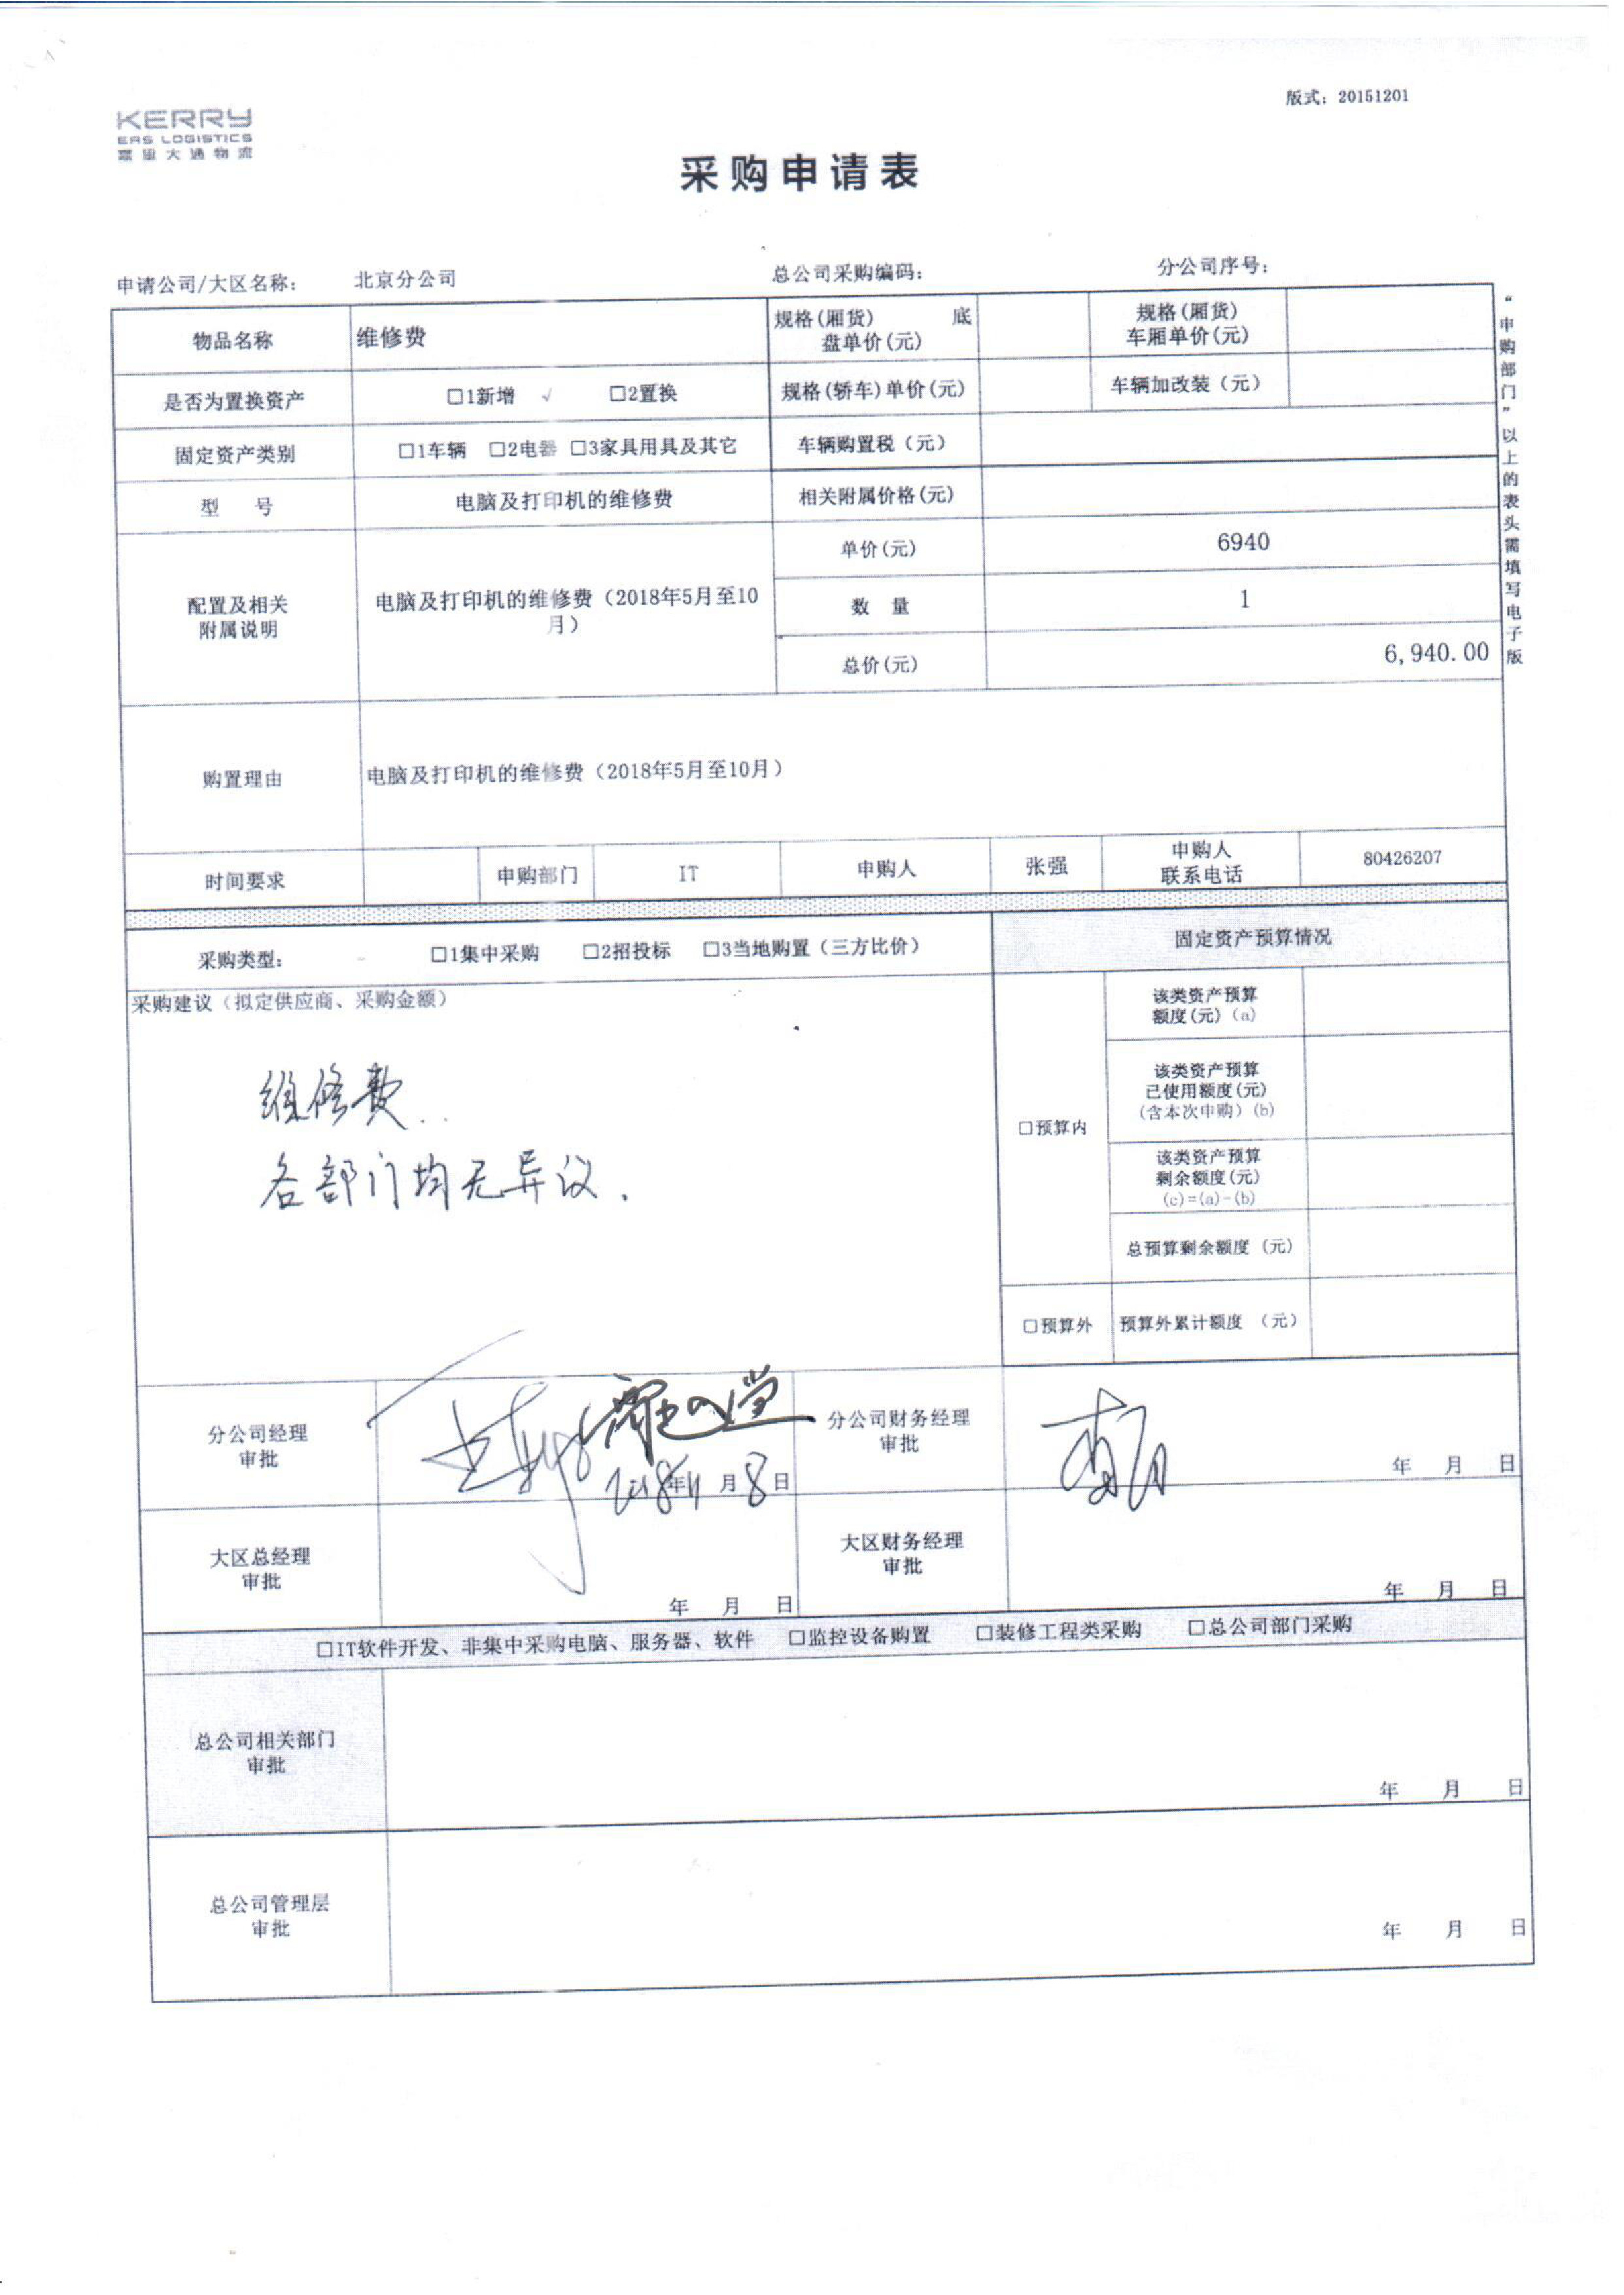 版式：20151201
KERRY
EAS LOGISTICS
嘉里大通物流
采购申请表
申请公司/大区名称： 北京分公司 总公司采购编码： 分公司序号：
物品名称 维修费 规格(厢货) 底
盘单价(元) 规格(厢货)
车厢单价(元)
是否为置换资产 □1新增 √ □2置换 规格(轿车)单价(元) 车辆加改装（元）
固定资产类别 □1车辆 □2电器 □3家具用具及其它 车辆购置税（元）
型 号 电脑及打印机的维修费 相关附属价格(元)
配置及相关
附属说明 电脑及打印机的维修费（2018年5月至10
月）
单价(元) 6940
数 量 1
总价(元) 6,940.00
“申购部门”以上的表头需填写电子版
购置理由 电脑及打印机的维修费（2018年5月至10月）
时间要求 申购部门 IT 申购人 张强 申购人
联系电话 80426207
采购类型： □1集中采购 □2招投标 □3当地购置（三方比价） 固定资产预算情况
采购建议（拟定供应商、采购金额）
维修费..
各部门均无异议.
□预算内
该类资产预算
额度(元)（a)
该类资产预算
已使用额度(元)
(含本次申购)（b)
该类资产预算
剩余额度(元)
(c)=(a)-(b)
总预算剩余额度（元）
□预算外 预算外累计额度 （元）
分公司经理
审批 2018年11月8日
分公司财务经理
审批 年 月 日
大区总经理
审批 年 月 日
大区财务经理
审批 年 月 日
□IT软件开发、非集中采购电脑、服务器、软件 □监控设备购置 □装修工程类采购 □总公司部门采购
总公司相关部门
审批 年 月 日
总公司管理层
审批 年 月 日